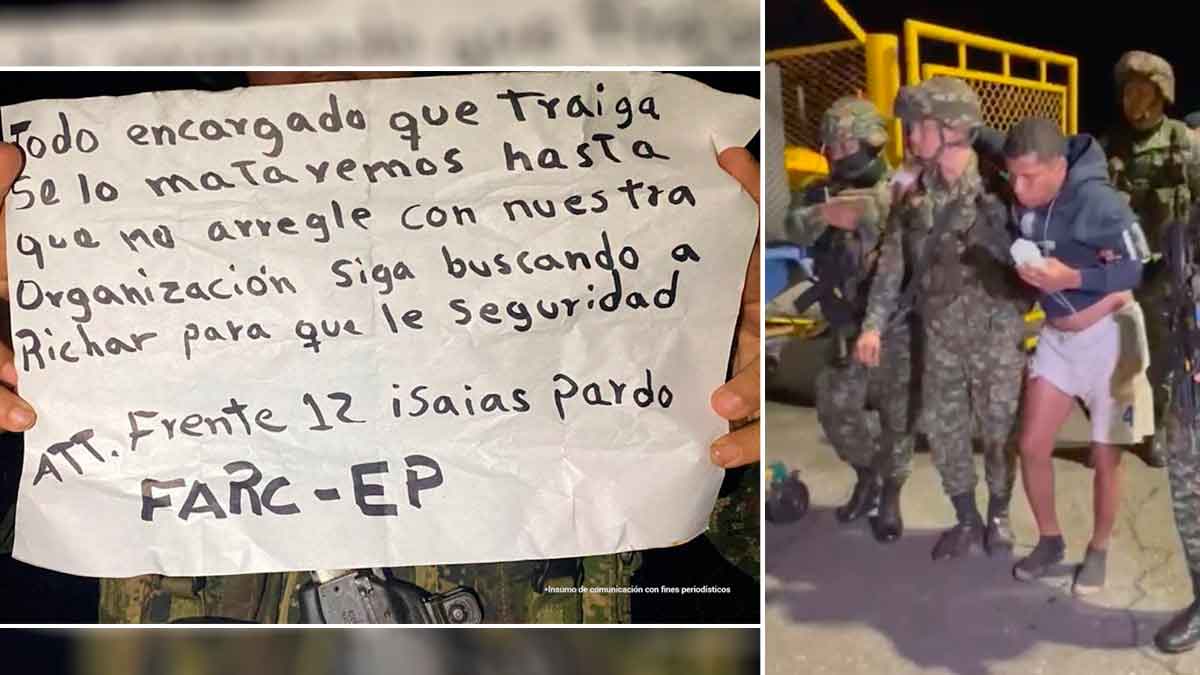 Todo encargado que Traiga
Se lo mataremos hasta
que no arregle con nuestra
Organización siga buscando a
Richar para que le seguridad
ATT. Frente 12 isaias pardo
FARC-EP
*Insumo de comunicación con fines periodísticos
4